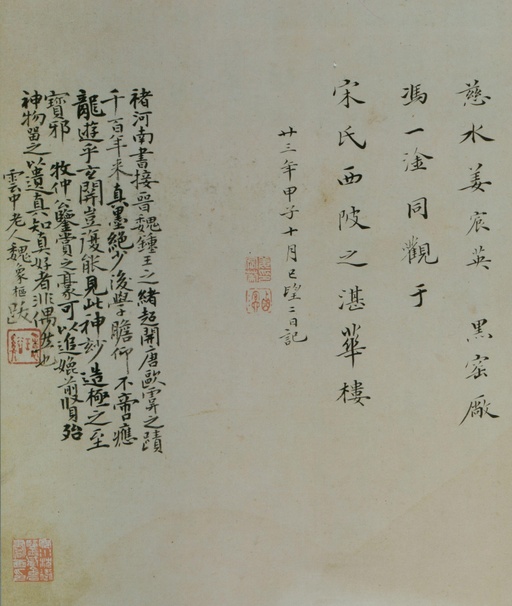 慈水姜宸英 黑窑厰
馮一淦同觀于
宋氏西陂之湛華樓
廿三年甲子十月已望二日記
褚河南書接晉魏鍾王之緒超開唐歐虞之蹟
千百年來真墨絕少後學瞻仰不啻應
龍遊乎玄閒豈復能見此神妙造極之至
寶邪 牧仲公鑒賞之豪可以追媲前賢殆
神物留之以遺真知真好者非偶然也
雲中老人魏象樞跋